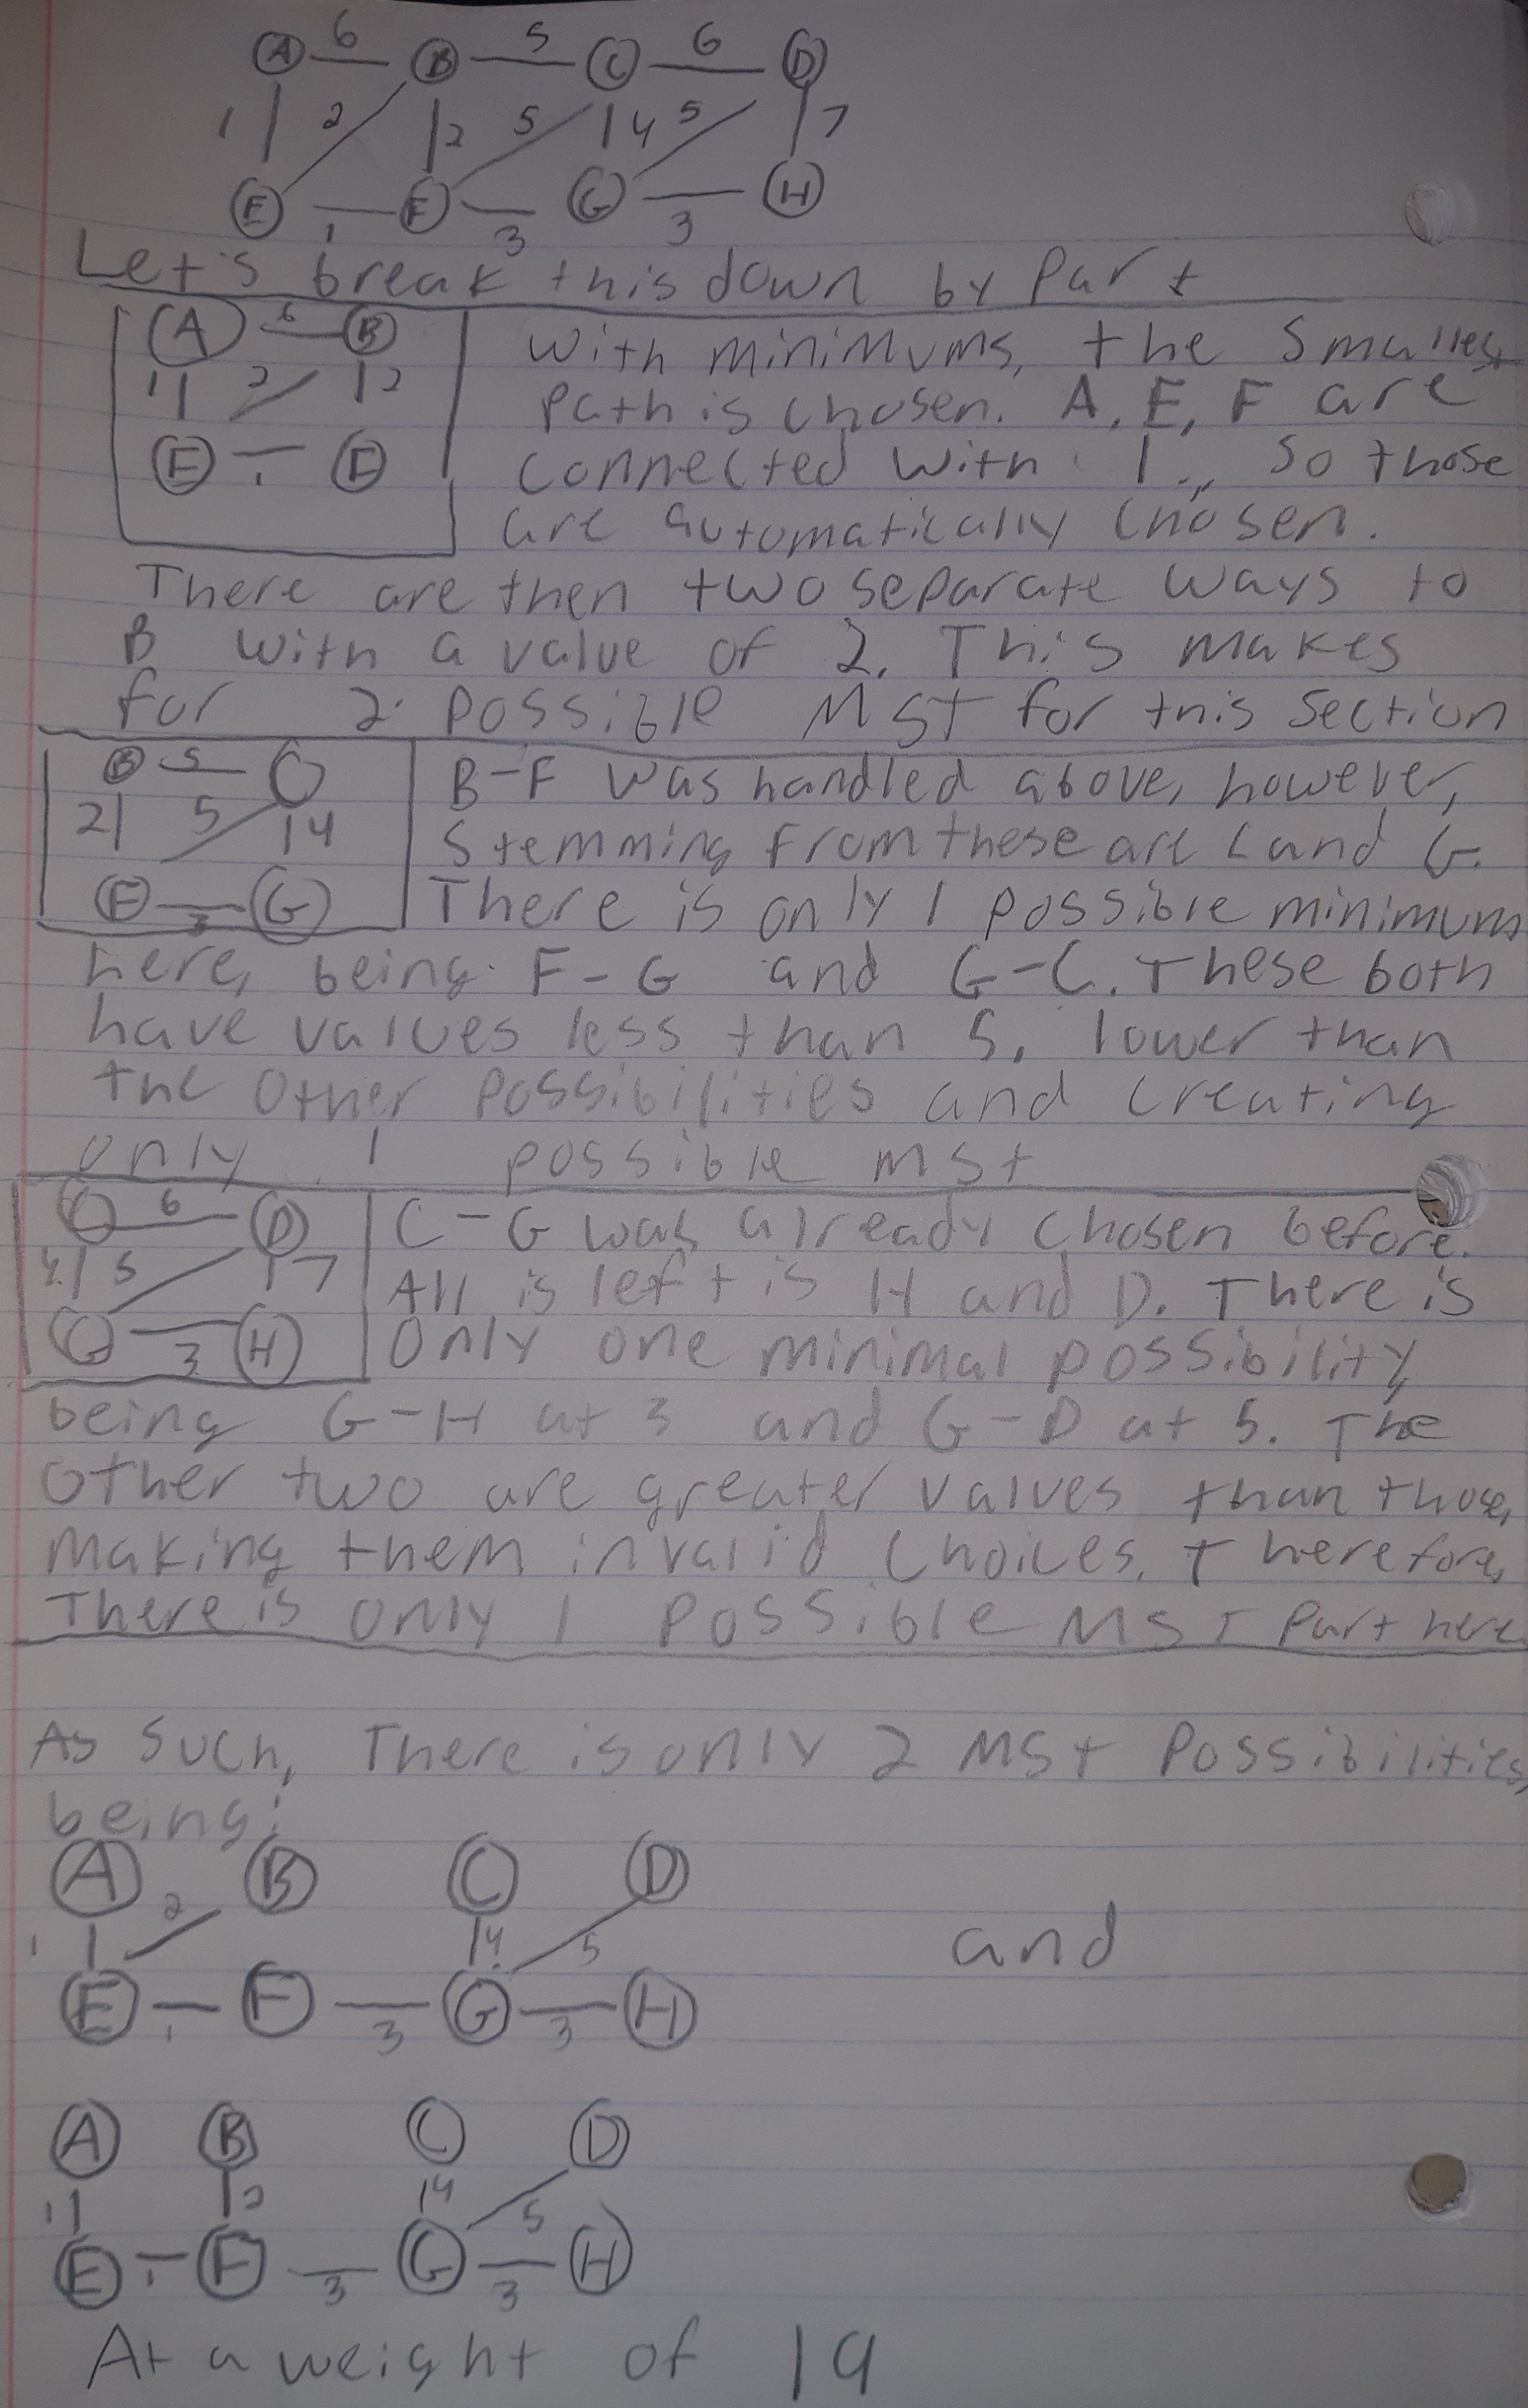 A 6 B 5 C 6 D
1 2 2 5 4 5 7
E 1 F 3 G 3 H
Let's break this down by Part
A 6 B
1 2 2
E 1 F
With minimums, the smallest
Path is chosen. A, E, F are
connected with 1, so those
are automatically chosen.
There are then two separate ways to
B with a value of 2. This makes
for 2 possible MST for this section
B 5 C
2 5 4
F 3 G
B-F was handled above, however,
stemming from these are C and G.
There is only 1 possible minimum
here, being F-G and G-C. These both
have values less than 5, lower than
the other possibilities and creating
only 1 possible MST
C 6 D
4 5 7
G 3 H
C-G was already chosen before.
All is left is H and D. There is
only one minimal possibility
being G-H at 3 and G-D at 5. The
other two are greater values than those,
making them invalid choices. Therefore,
There is only 1 possible MST Part here
As such, There is only 2 MST Possibilities,
being:
A B C D
1 2 4 5
and
E 1 F 3 G 3 H
A B C D
1 2 4 5
E 1 F 3 G 3 H
At a weight of 19